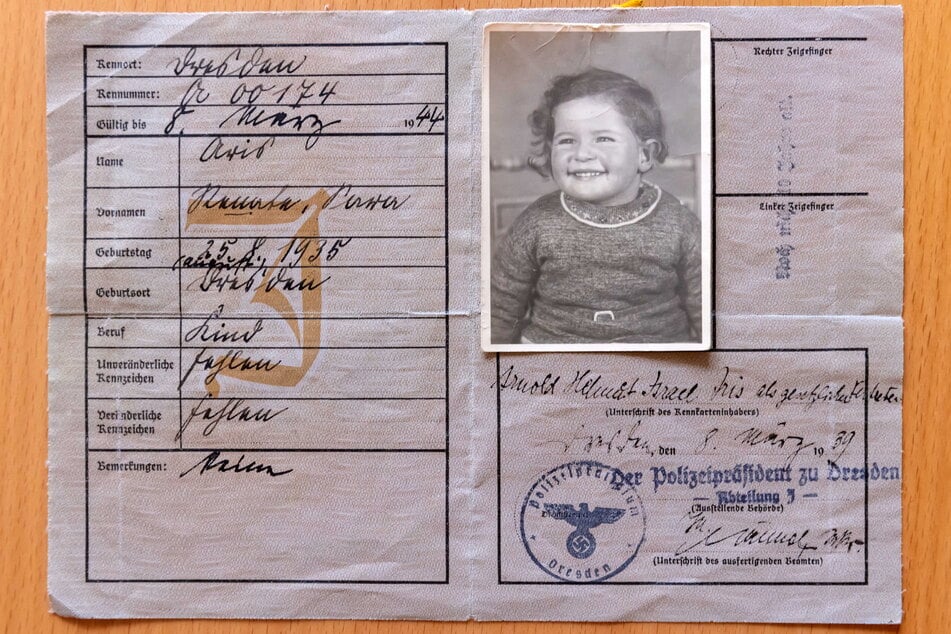 Kennort: Dresden
Kennummer: A 00174
Gültig bis 8. März 1944
Name Aris
Vornamen Renate, Sara
Geburtstag 25. 8. 1935
(August)
Geburtsort Dresden
Beruf Kind
Unveränderliche Kennzeichen fehlen
Veränderliche Kennzeichen fehlen
Bemerkungen: Keine
J
Rechter Zeigefinger
Linker Zeigefinger
Arnold Helmut Israel Aris als gesetzlicher
(Unterschrift des Kennkarteninhabers)
Dresden, den 8. März 1939
Der Polizeipräsident zu Dresden
Abteilung
(Ausstellende Behörde)
(Unterschrift des ausfertigenden Beamten)
Polizeipräsidium
Dresden